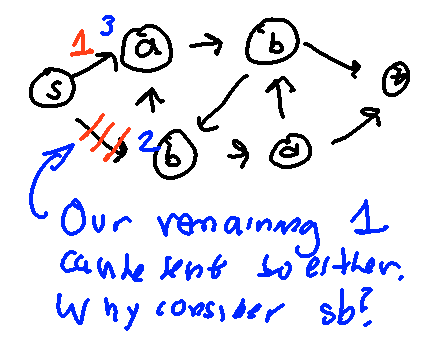 1 3
a
b
s
t
2
b
d
Our remaining 1
can be sent to either.
Why consider sb?